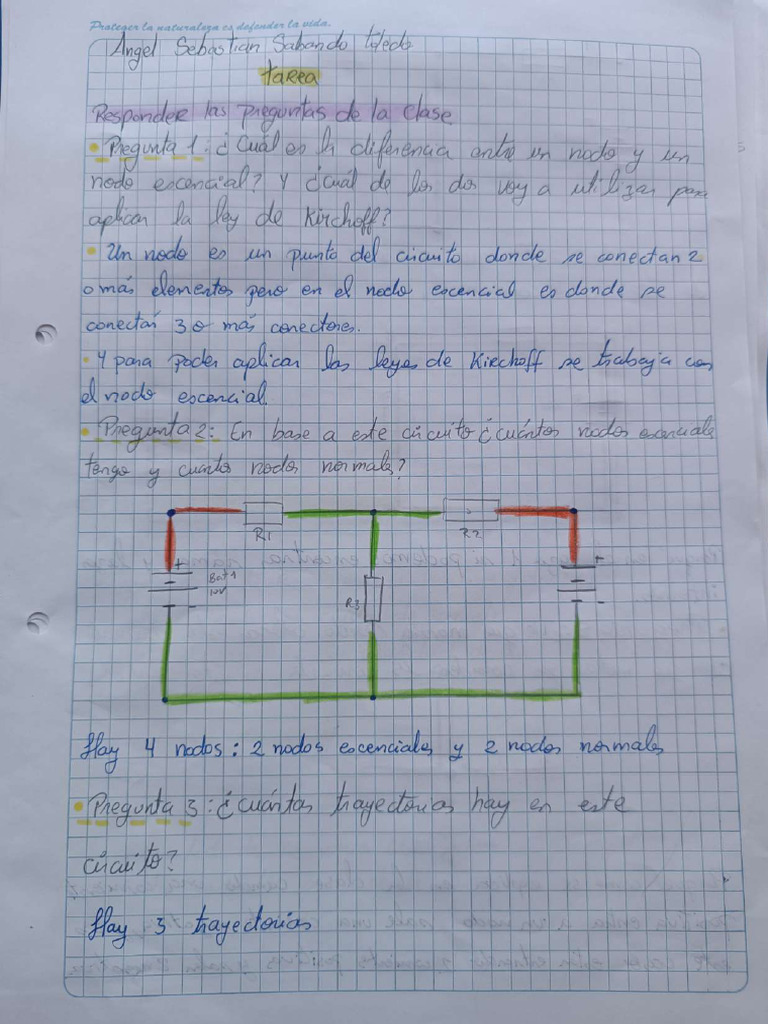 Proteger la naturaleza es defender la vida.
Angel Sebastian Sabando toledo
tarea
Responder las preguntas de la clase
• Pregunta 1: ¿Cuál es la diferencia entre un nodo y un
nodo escencial? Y ¿cuál de los dos voy a utilizar para
aplicar la ley de Kirchoff?
• Un nodo es un punto del circuito donde se conectan 2
o más elementos pero en el nodo escencial es donde se
conectan 3 o más conectores.
• Y para poder aplicar las leyes de Kirchoff se trabaja con
el nodo escencial.
• Pregunta 2: En base a este circuito ¿cuántos nodos esenciales
tengo y cuantos nodos normales?
R1 R2
+ +
Bat 1
10V
R3
- -
Hay 4 nodos: 2 nodos escenciales y 2 nodos normales
• Pregunta 3: ¿Cuántas trayectorias hay en este
circuito?
Hay 3 trayectorias